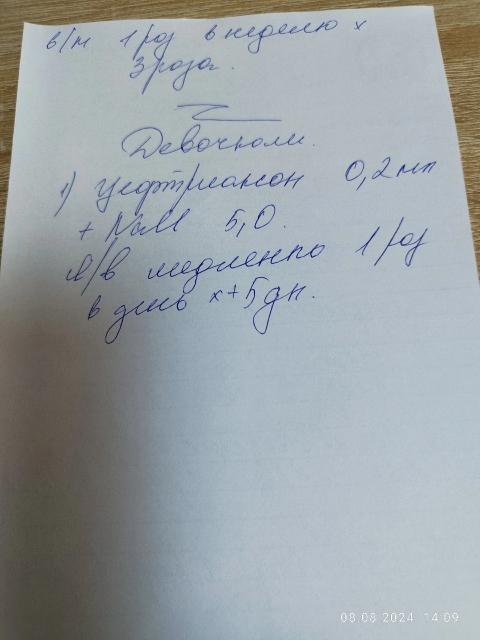 в/м 1 раз в неделю х
3 раза.
Девочкам.
1) Цефтриаксон 0,2 мл
+ NaCl 5,0.
в/в медленно 1 раз
в день х 5 дн.
08 08 2024 14:09